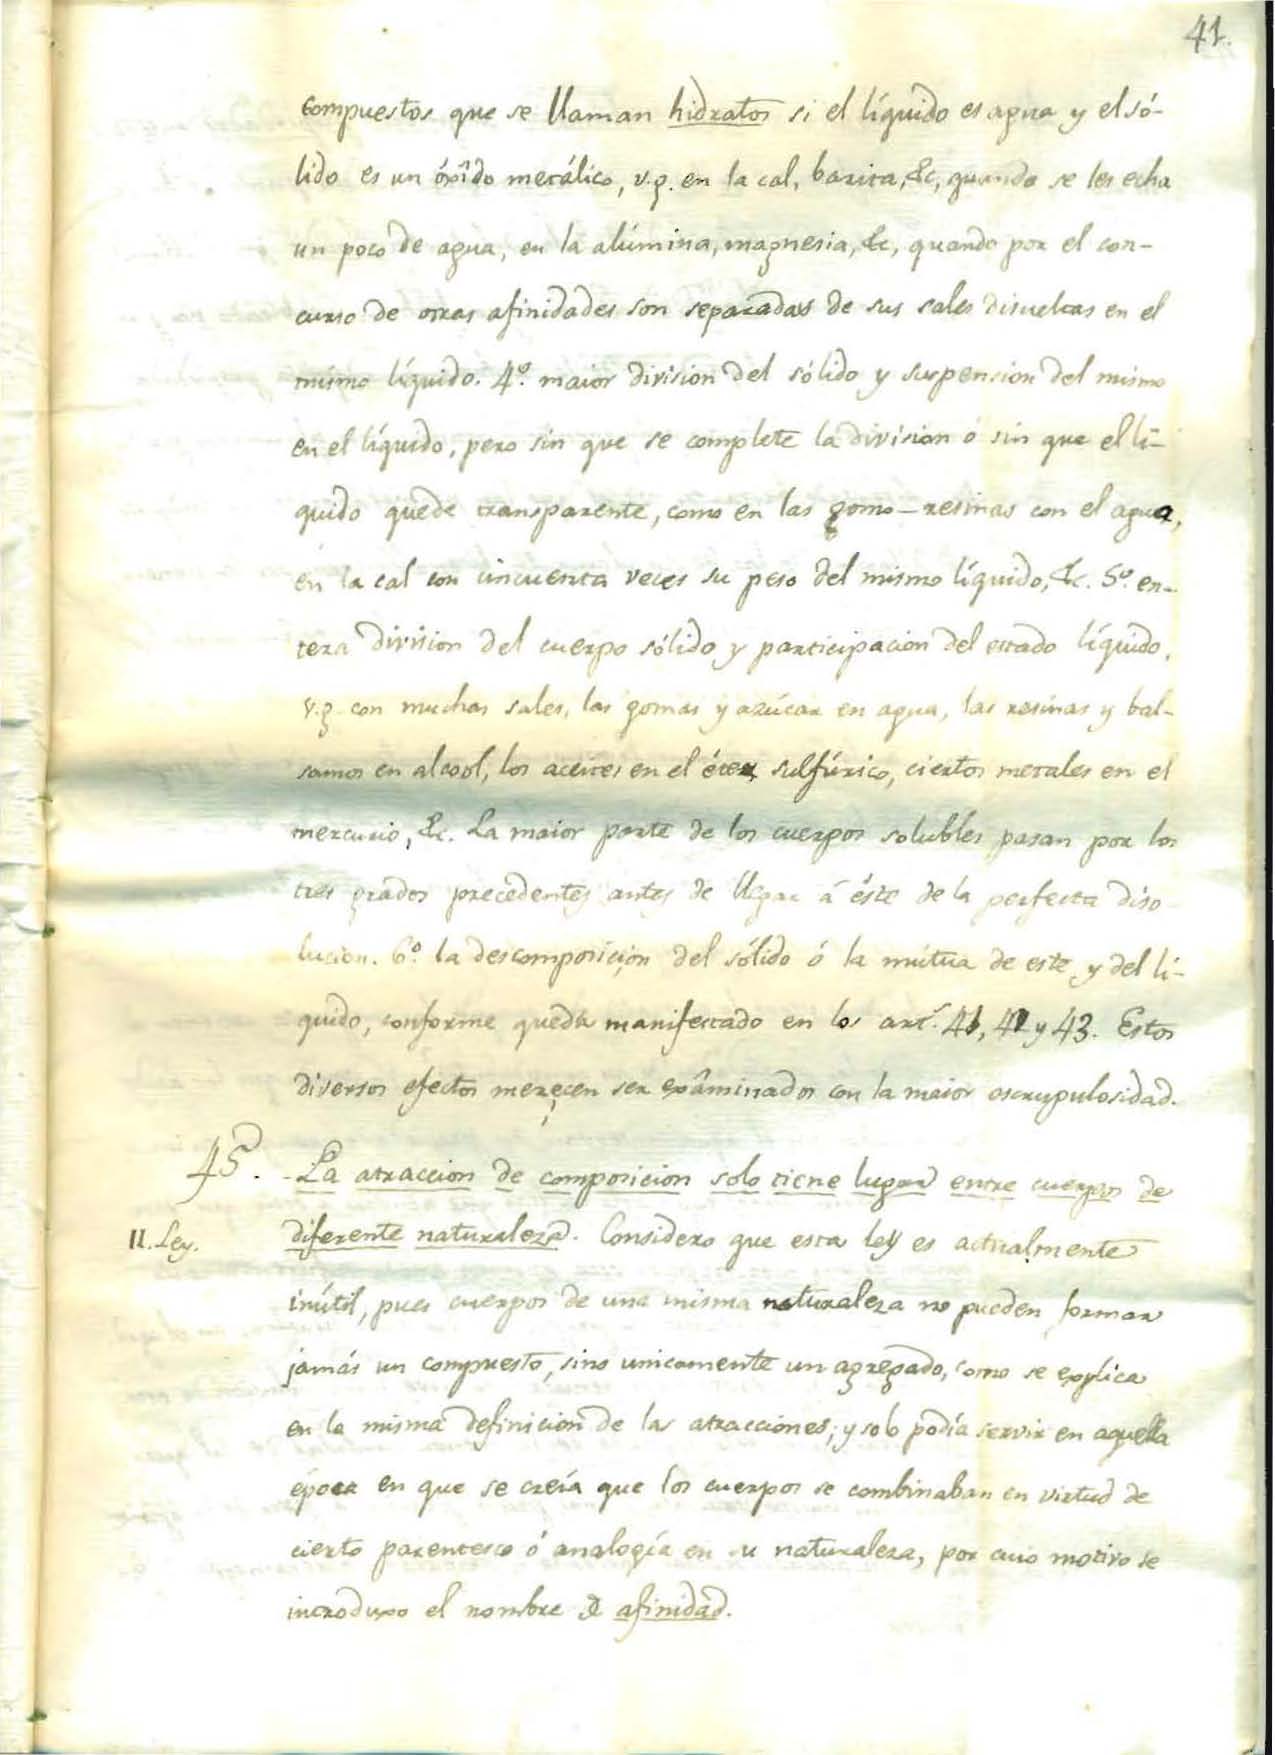 41.
compuestos que se llaman hidratos si el líquido es agua y el só-
lido es un óxîdo metálico, v.g. en la cal, barita, &c, quando se les echa
un poco de agua, en la alúmina, magnesia, &c, quando por el con-
curso de otras afinidades son separadas de sus sales disueltas en el
mismo líquido. 4º. maior division del sólido y suspension del mismo
en el líquido, pero sin que se complete la division ó sin que el lí-
quido quede transparente, como en las gomo-resinas con el agua,
en la cal con cincuenta veces su peso del mismo líquido, &c. 5º. en-
tera division del cuerpo sólido y participacion del estado líquido,
v.g. con muchas sales, las gomas y azúcar en agua, las resinas y bal-
samos en alcool, los aceites en el éter sulfúrico, ciertos metales en el
mercurio, &c. La maior parte de los cuerpos solubles pasan por los
tres grados precedentes antes de llegar á éste de la perfecta diso-
lucion. 6º. la descomposicion del sólido ó la mútua de este y del lí-
quido, conforme queda manifestado en los art.s 41, 42 y 43. Estos
diversos efectos merecen ser exâminados con la maior escrupulosidad.
45. La atraccion de composicion solo tiene lugar entre cuerpos de
II. Ley. diferente naturaleza. Considero que esta ley es actualmente
inútil, pues cuerpos de una misma naturaleza no pueden formar
jamás un compuesto, sino unicamente un agregado, como se explica
en la misma definicion de las atracciones; y solo podía servir en aquella
época en que se creía que los cuerpos se combinaban en virtud de
cierto parentesco ó analogía en su naturaleza, por cuio motivo se
introduxo el nombre de afinidad.